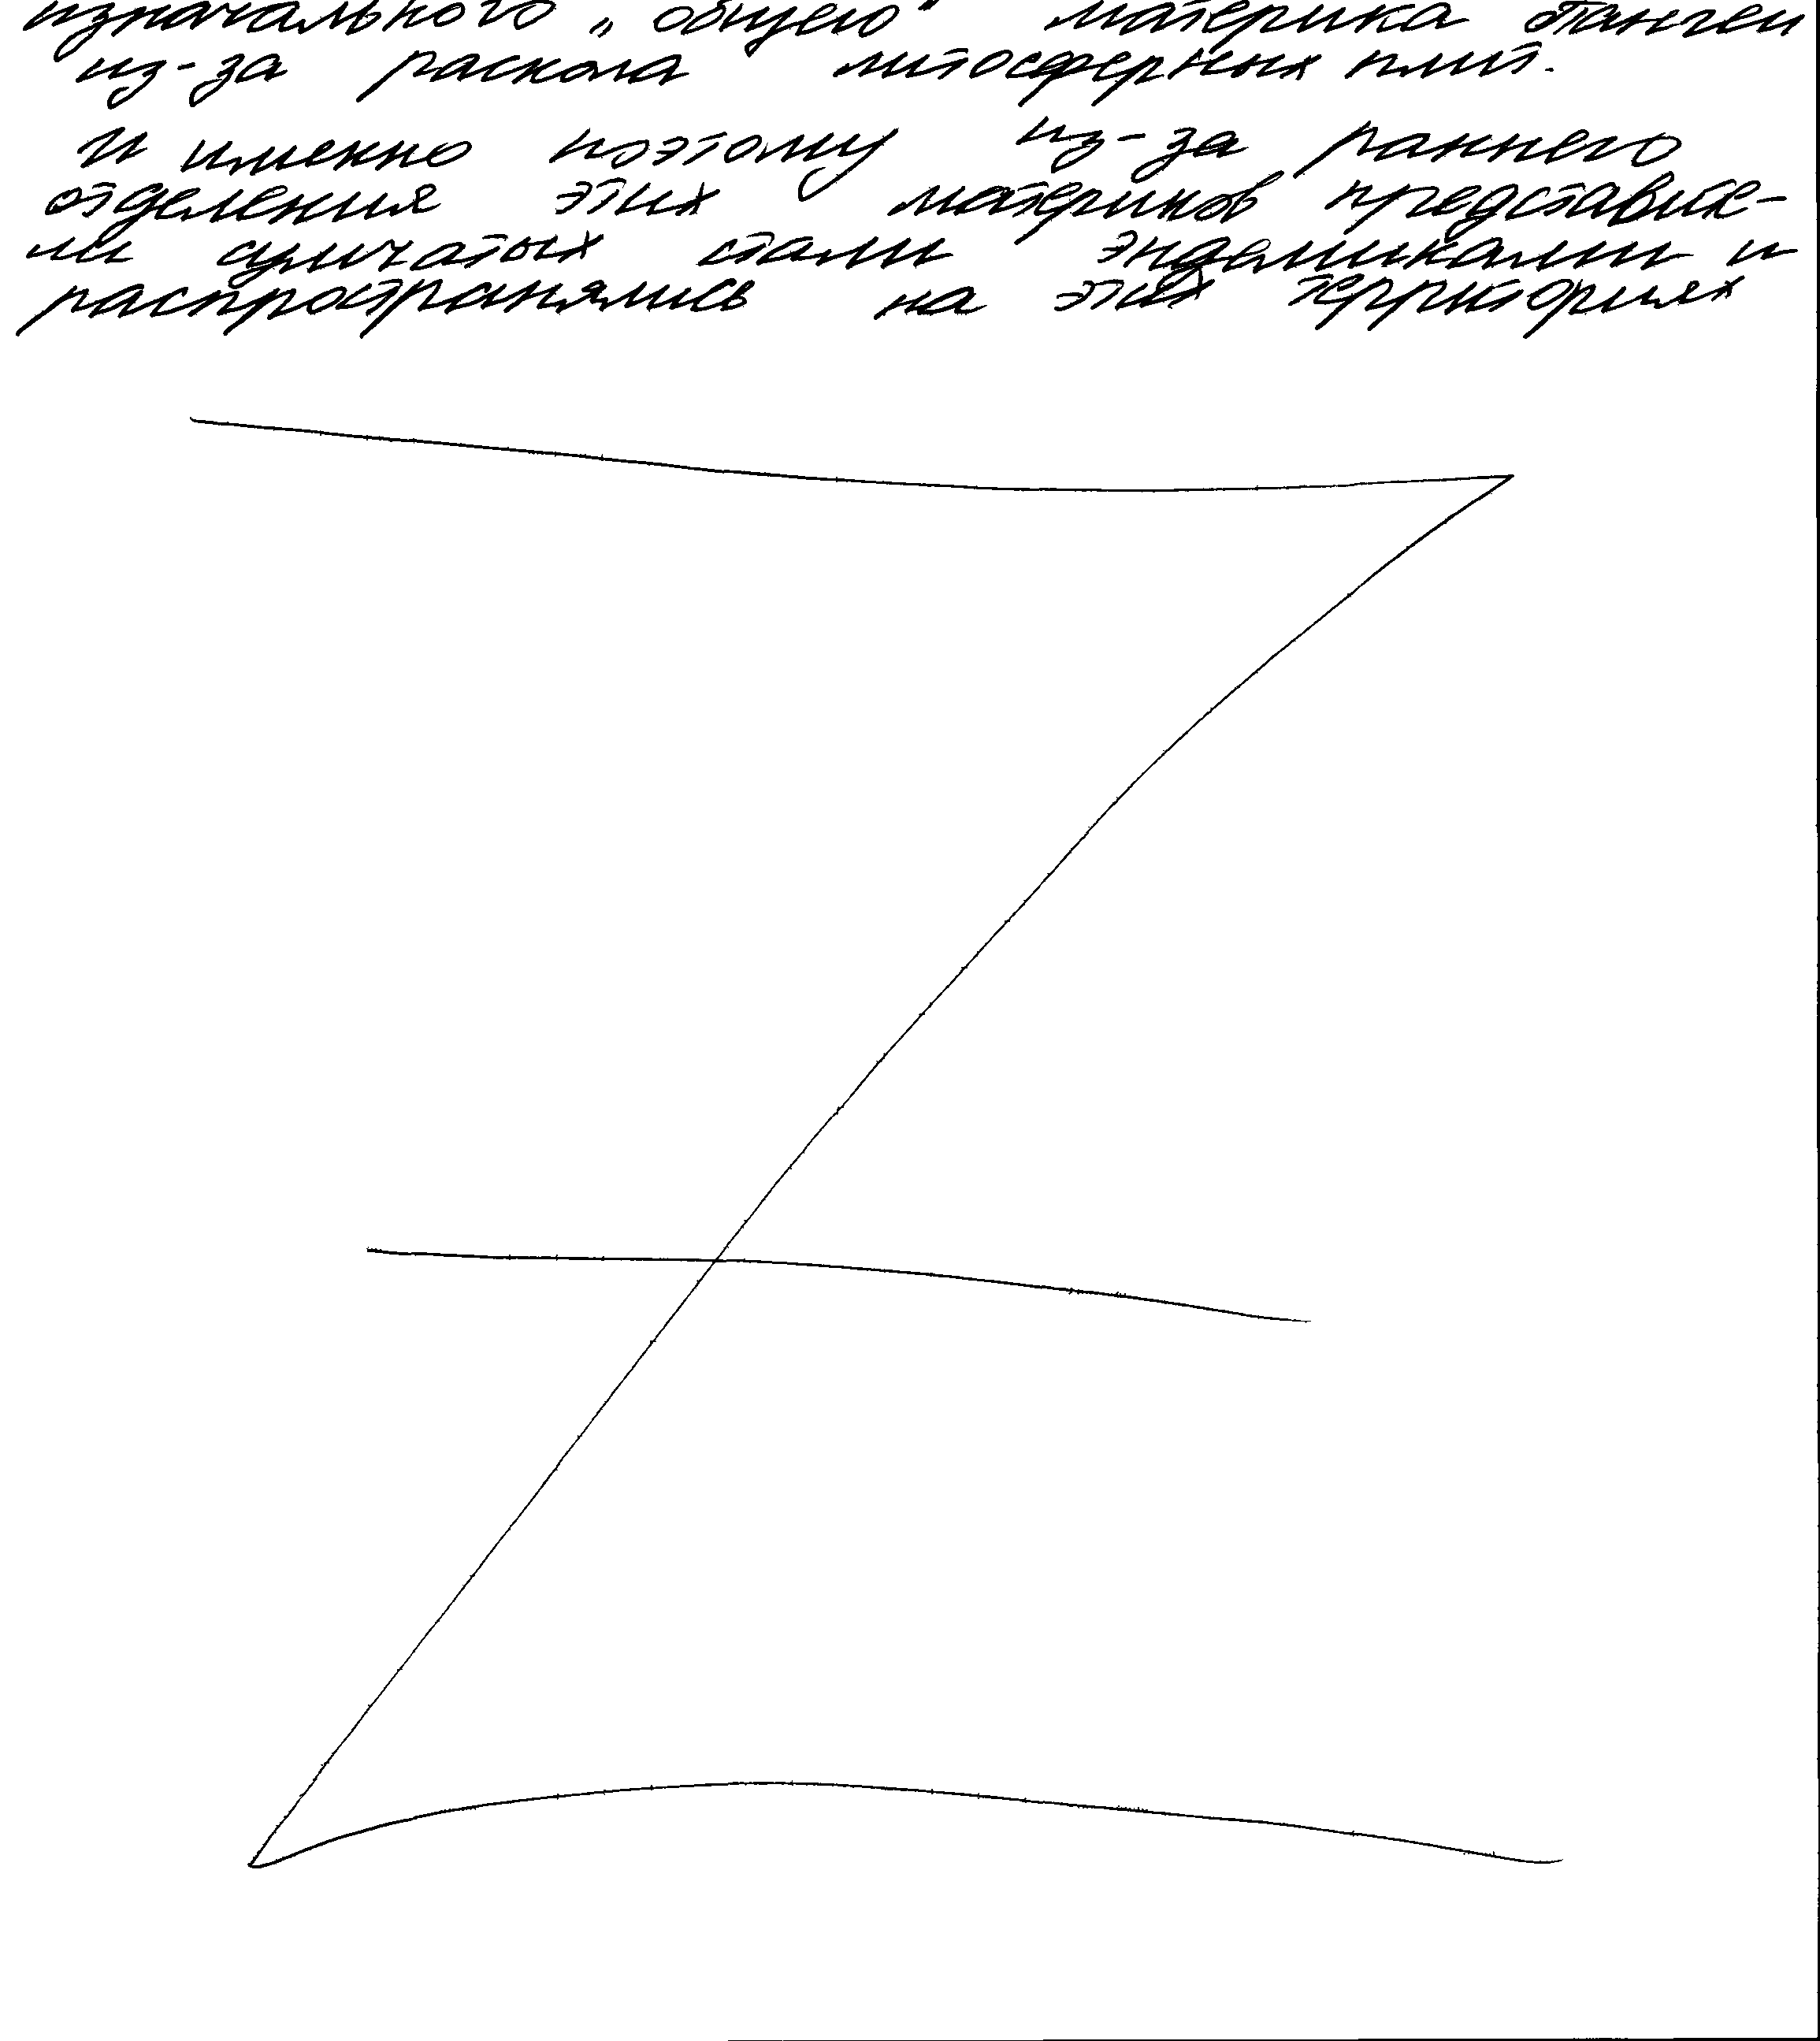 изначального „общего" материка Пангеи
из-за раскола литосферных плит.
И именно поэтому из-за раннего
отделения этих материков представите-
ли сумчатых стали эндемиками и
распространялись на этих территориях